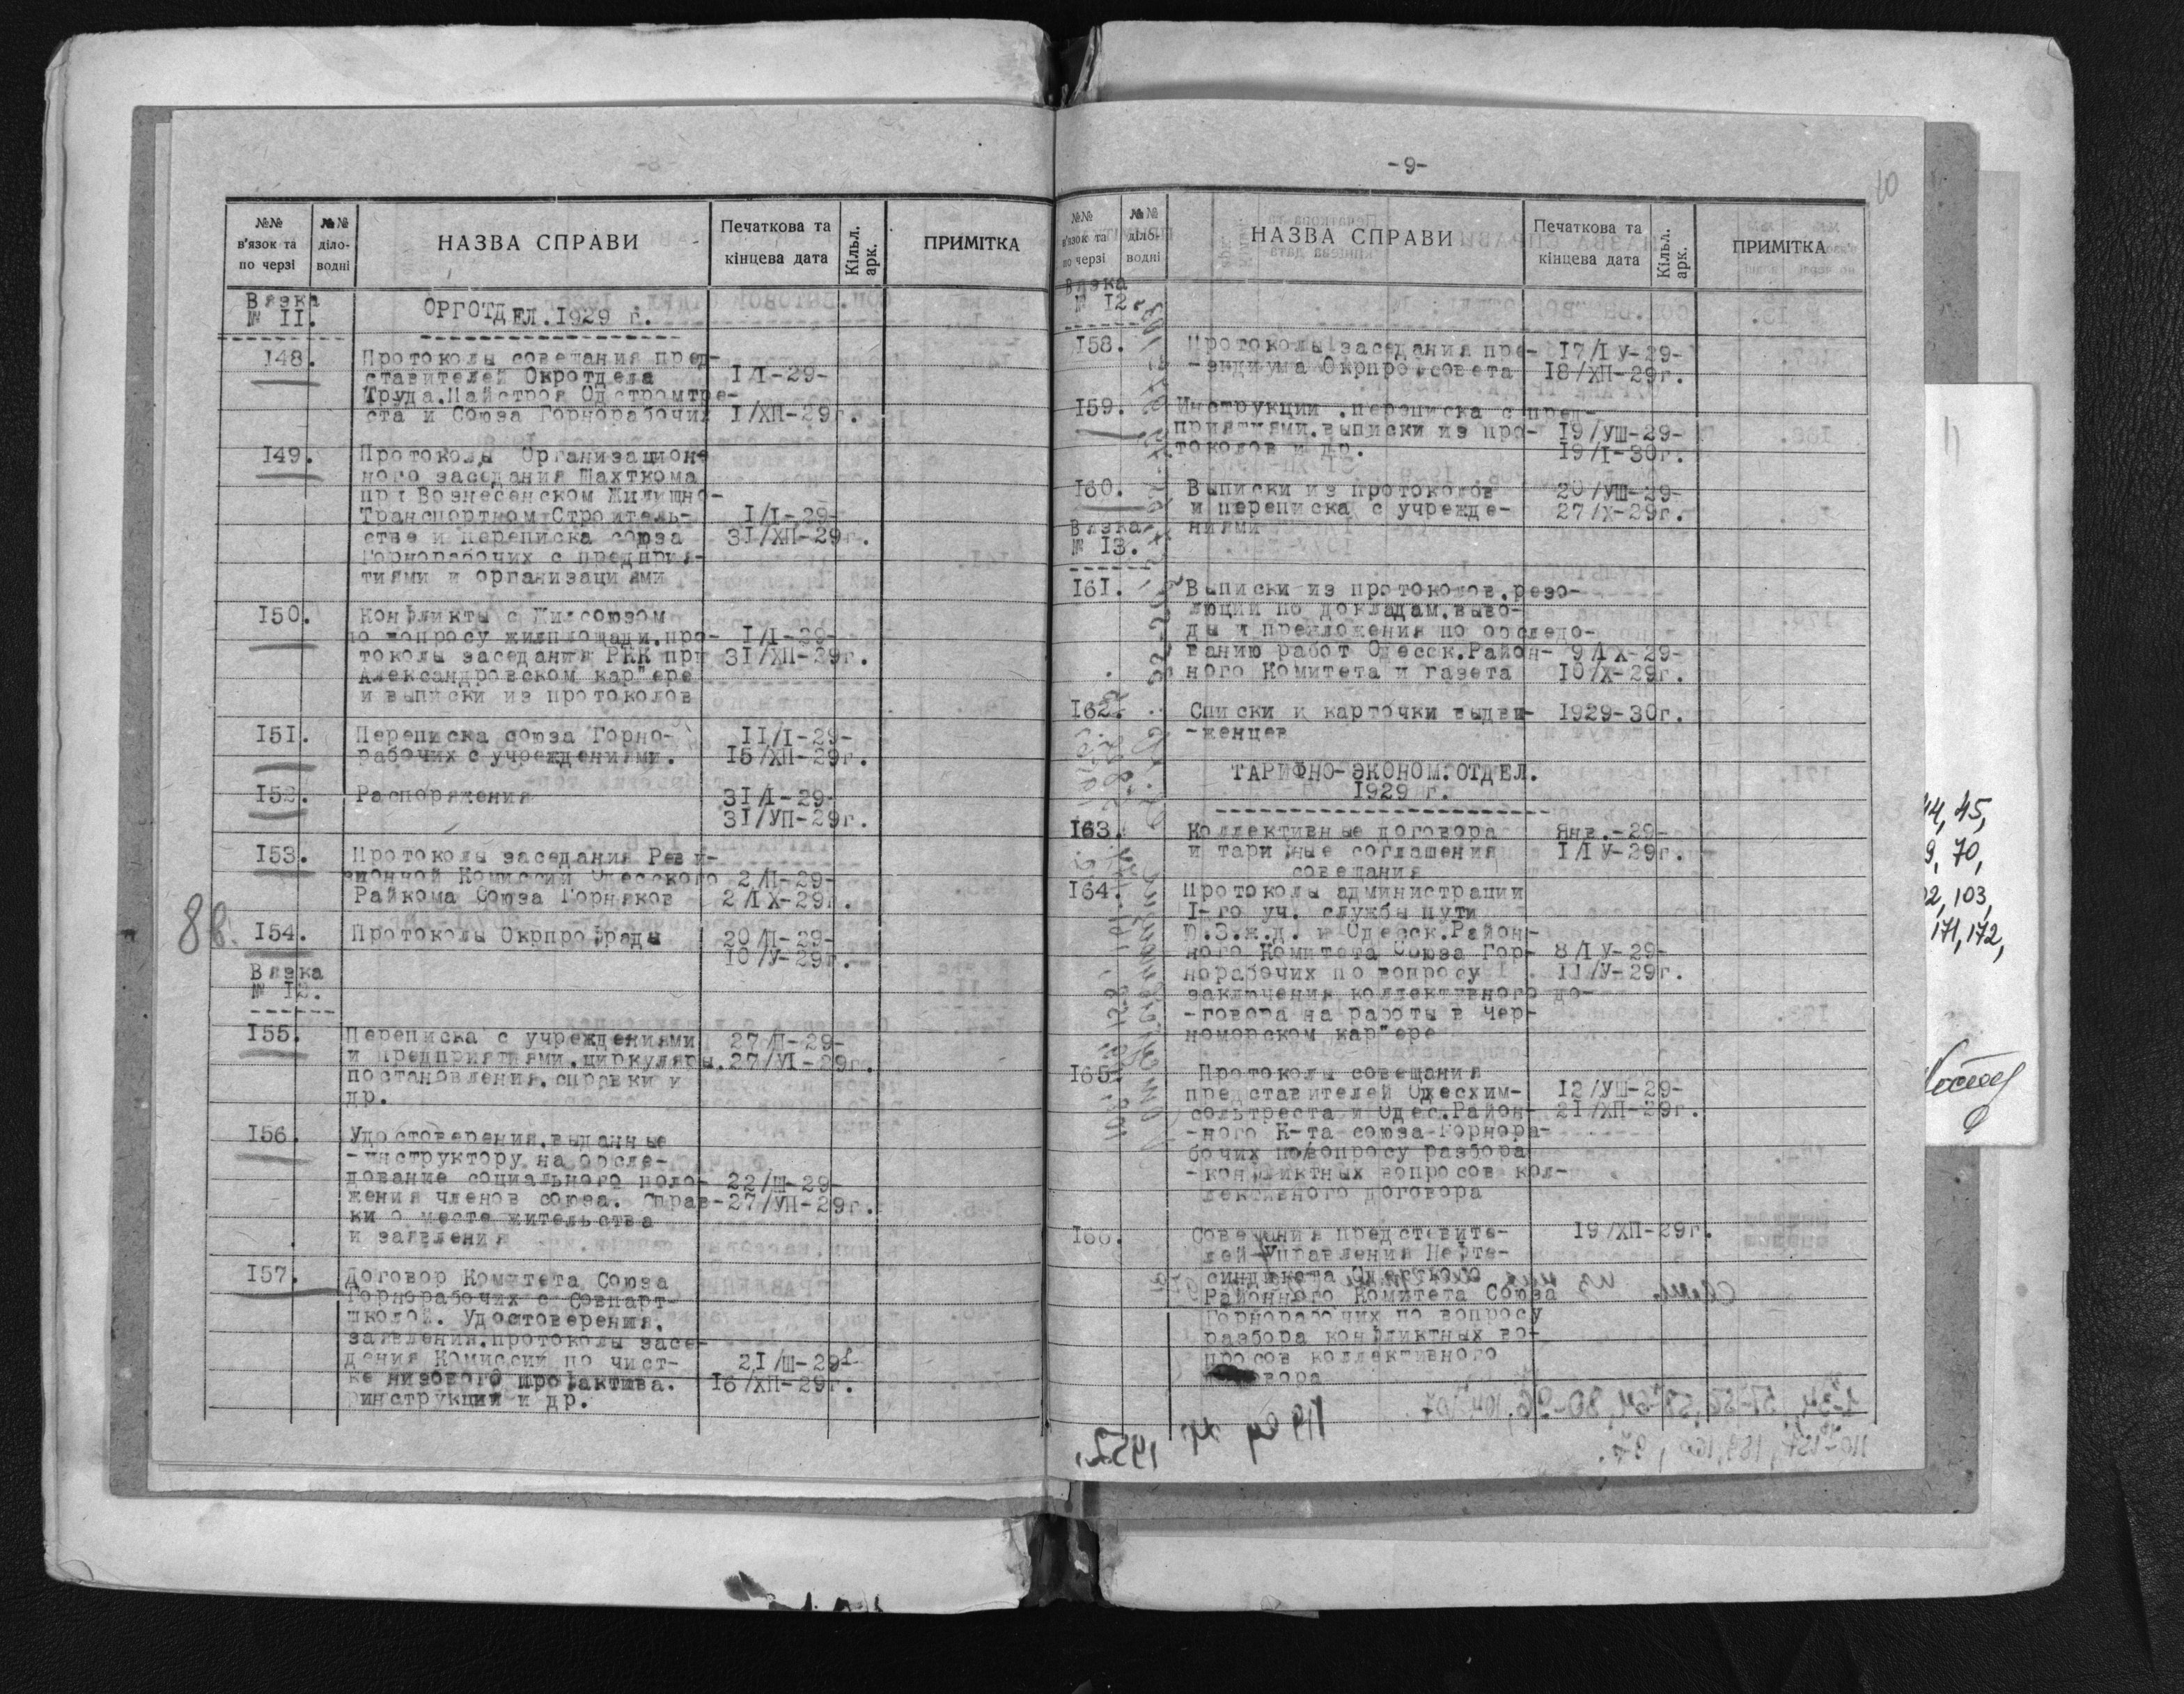 -8-
№№ в'язок та по черзі
№№ діловодні
НАЗВА СПРАВИ
Печаткова та кінцева дата
Кільк. арк.
ПРИМІТКА
Вязка
№ II.
ОРГОТДЕЛ.I929 г.
I48.
Протоколы совещания пред-
ставителей Окротдела I/I-29-
Труда.Майстроя Одстромтре-
ста и Союза Горнорабочих I/ХП-29г.
I49.
Протоколы Организацион-
ного заседания Шахткома
при Вознесенском Жилищно-
Транспортном Строитель- I/I-29-
стве и переписка союза 3I/ХП-29г.
Горнорабочих с предприя-
тиями и организациями
I50.
Конфликты с Жилсоюзом
по вопросу жилплощади.про- I/I-29-
токолы заседания РКК при 3I/ХП-29г.
Александровском кар"ере
и выписки из протоколов
I5I.
Переписка союза Горно- II/I-29-
рабочих с учреждениями. I5/ХП-29г.
I52.
Распоряжения 3I/I-29-
3I/УП-29г.
I53.
Протоколы заседания Реви-
зионной Комиссии Одесского 2/П-29-
Райкома Союза Горняков 2/IХ-29г.
88.
I54.
Протоколы Окрпрофрады 20/П-29-
I0/У-29г.
Вязка
№ I2.
I55.
Переписка с учреждениями 27/П-29-
и предприятиями.циркуляры. 27/УI-29г.
постановления.справки и
др.
I56.
Удостоверения.выданные
-инструктору на обсле-
дование социального поло- 22/Ш-29-
жения членов союза. Справ- 27/УП-29г.
ки о месте жительства
и заявления
I57.
Договор Комитета Союза
Горнорабочих с Совпарт-
школой. Удостоверения.
заявления.протоколы засе-
дения Комиссий по чист- 2I/Ш-29
ке низового профактива. I6/ХП-29г.
инструкции и др.
-9-
10
№№ в'язок та по черзі
№№ діловодні
НАЗВА СПРАВИ
Печаткова та кінцева дата
Кільк. арк.
ПРИМІТКА
Вязка
№ I2
I58.
Протоколы заседания пре- I7/IУ-29-
-зидиума Окрпрофсовета I8/ХП-29г.
I59.
Инструкции.переписка с пред-
приятиями.выписки из про- I9/УШ-29-
токолов и др. I9/I-30г.
I60.
Выписки из протоколов 20/УШ-29-
и переписка с учрежде- 27/Х-29г.
ниями
Вязка
№ I3.
I6I.
Выписки из протоколов.резо-
люции по докладам.выво-
ды и предложения по обследо-
ванию работ Одесск.Район- 9/IХ-29-
ного Комитета и газета I0/Х-29г.
I62.
Списки и карточки выдви- I929-30г.
-женцев
ТАРИФНО-ЭКОНОМ.ОТДЕЛ.
I929 г.
I63.
Коллективные договора Янв.-29-
и тарифные соглашения I/IУ-29г.
совещания
I64.
Протоколы администрации
I-го уч. службы пути
Ю.З.ж.д. и Одесск.Район-
ного Комитета Союза Гор- 8/IУ-29-
норабочих по вопросу II/У-29г.
заключения коллективного до-
-говора на работы в Чер-
номорском кар"ере
I65.
Протоколы совещания
представителей Одесхим- I2/УШ-29-
сольтреста и Одес.Район- 2I/ХП-29г.
-ного К-та союза Горнора-
бочих по вопросу разбора
-конфликтных вопросов кол-
лективного договора
I66.
Совещания представите- I9/ХП-29г.
лей Управления Нефте-
синдиката Одесского
Районного Комитета Союза
Горнорабочих по вопросу
разбора конфликтных во-
просов коллективного
договора
44, 45,
9, 70,
02, 103,
171, 172,